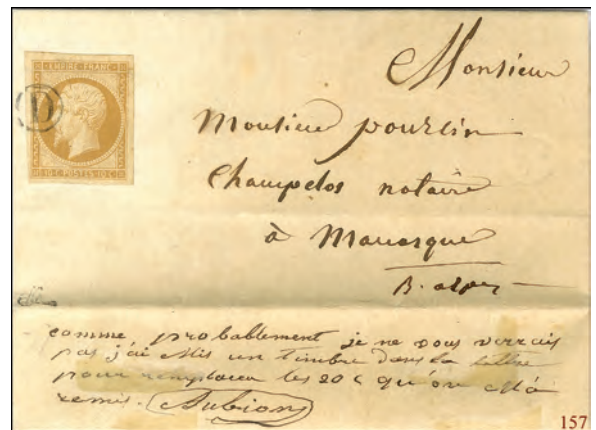 EMPIRE FRANC
10 C. POSTES 10 C.
D
Monsieur
Monsieur pourcin
Champclos notaire
à Manosque
B. alpes
comme probablement je ne vous verrais
pas j'ai Mis un timbre dans la lettre
pour remplacer les 20 c qu'on M'a
remis. Aubions
157